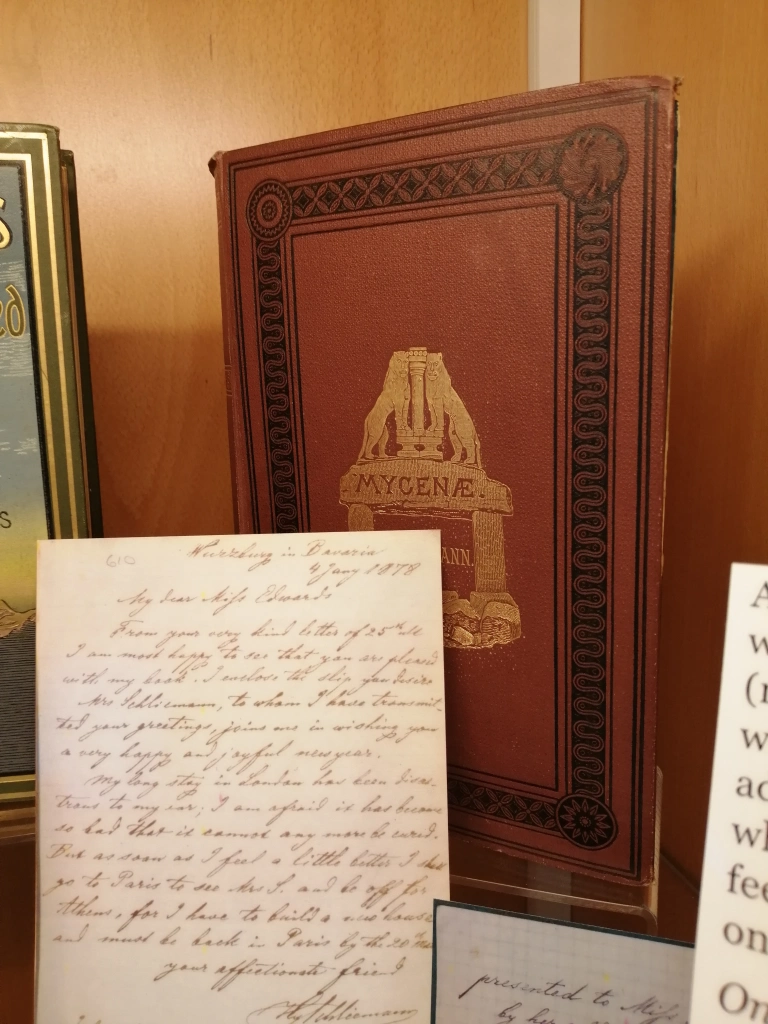 s
ed
s
MYCENÆ.
ANN.
610
Wurzburg in Bavaria
4 Jany 1878
My dear Miss Edwards
From your very kind letter of 25th ult
I am most happy to see that you are pleased
with my book. I enclose the slip you desire
Mrs Schliemann, to whom I have transmit-
ted your greetings, joins me in wishing you
a very happy and joyful new year.
My long stay in London has been disas-
trous to my ear; I am afraid it has become
so bad that it cannot any more be cured.
But as soon as I feel a little better I shall
go to Paris to see Mrs S. and be off for
Athens, for I have to build a new house
and must be back in Paris by the 20th
your affectionate friend
Hy Schliemann
presented to Miss
by her
A
w
(
w
ac
wh
fee
on
On